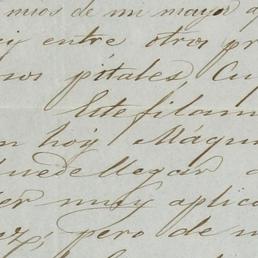 mios de mi mayor a
entre otros pr
pitales, Cu
Este filam
n hoy Máqui
puede llegar a
er muy aplica
pero de m